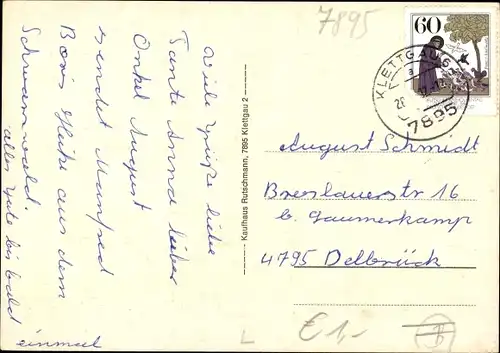 7895
60
KLETTGAU
7895
Viele Grüße liebe
Tante Anna lieber
Onkel August
sendet Manfred
Boris Heike aus dem
Schwarzwald.
alles gute bis bald
einmal
Kaufhaus Rutschmann, 7895 Klettgau 2
August Schmidt
Breslauerstr 16
b. Gaumerkamp
4795 Delbrück
€ 1,-